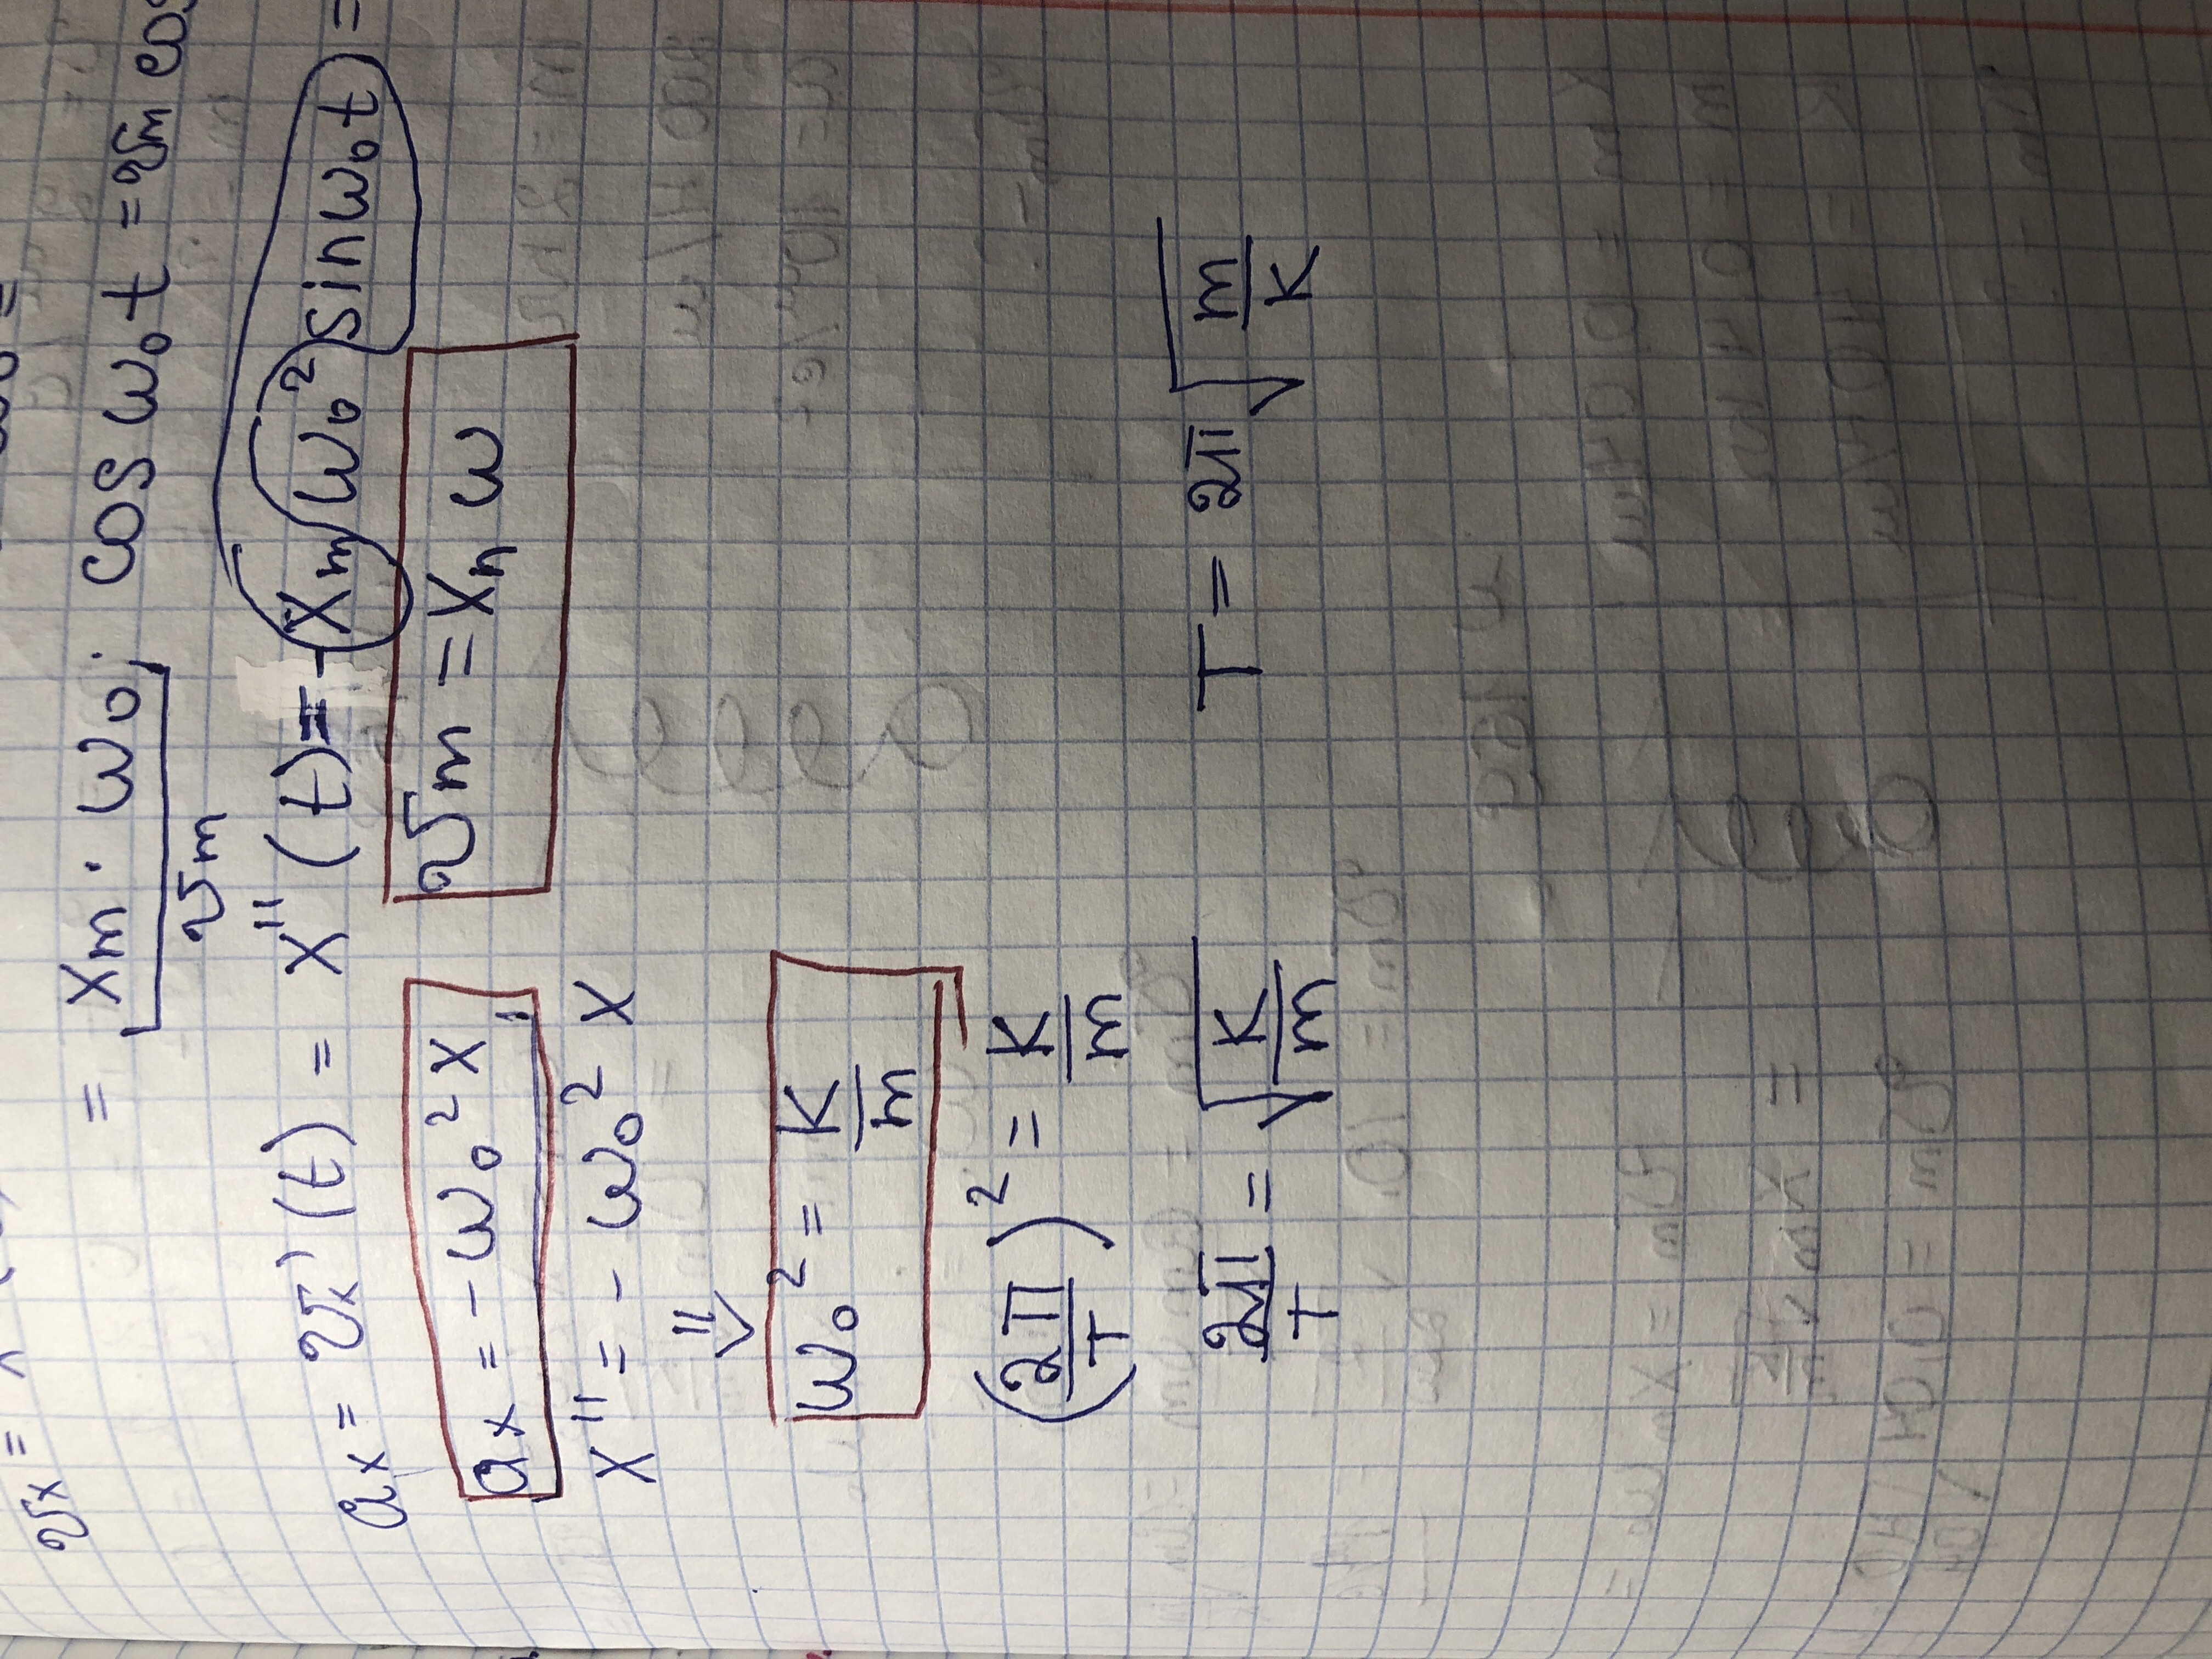 υx =
= xm · ω0 · cos ω0 t = υm cos
υm
ax = υx' (t) = x'' (t) = - xm ω0² sin ω0 t =
ax = - ω0² x ;
υm = xn ω
x'' = - ω0² x
⇓
ω0² = K/m
(2π/T)² = K/m
2π/T = √(K/m)
T = 2π √(m/K)